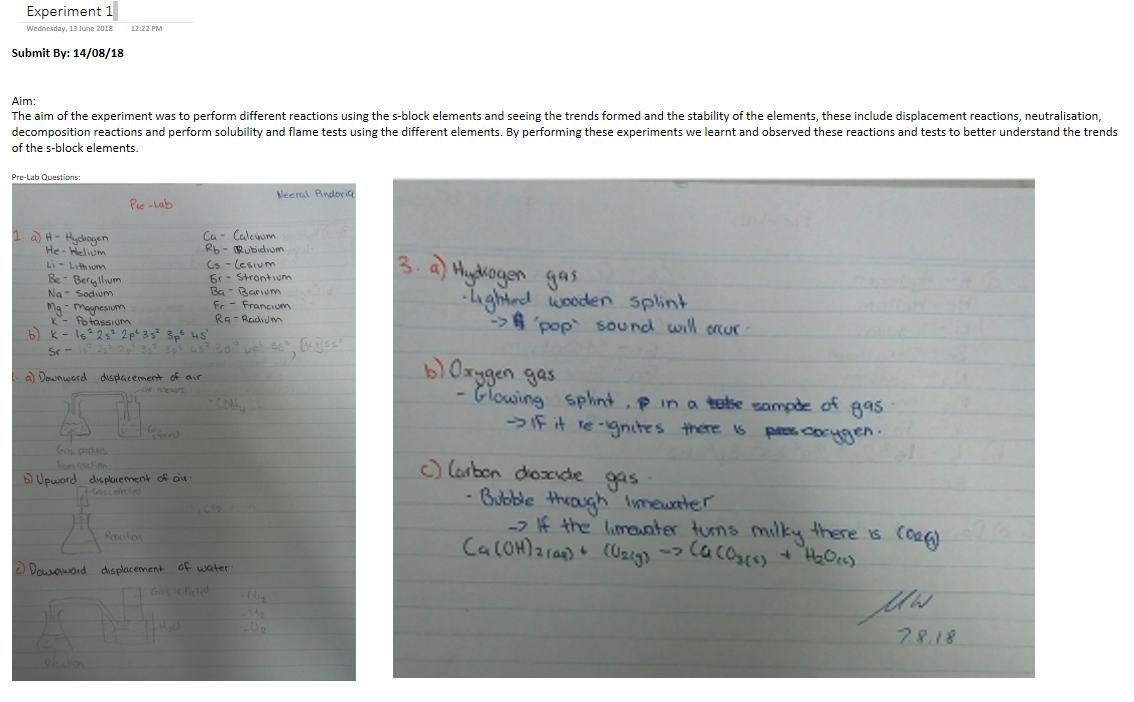 Experiment 1
Wednesday, 13 June 2018 12:22 PM
Submit By: 14/08/18
Aim:
The aim of the experiment was to perform different reactions using the s-block elements and seeing the trends formed and the stability of the elements, these include displacement reactions, neutralisation,
decomposition reactions and perform solubility and flame tests using the different elements. By performing these experiments we learnt and observed these reactions and tests to better understand the trends
of the s-block elements.
Pre-Lab Questions:
Neeral Pindoria
Pre-Lab
1. a) H - Hydrogen
He - Helium
Li - Lithium
Be - Beryllium
Na - Sodium
Mg - Magnesium
K - Potassium
Ca - Calcium
Rb - Rubidium
Cs - Cesium
Sr - Strontium
Ba - Barium
Fr - Francium
Ra - Radium
b) K - 1s² 2s² 2p⁶ 3s² 3p⁶ 4s¹
Sr - 1s² 2s² 2p⁶ 3s² 3p⁶ 4s² 3d¹⁰ 4p⁶ 5s², [Kr]5s²
a) Downward displacement of air
Gas produced
from reaction
b) Upward displacement of air
Gas collected
Reaction
c) Downward displacement of water
Gas collected
-CO₂
-H₂
-O₂
H₂O
Reaction
3. a) Hydrogen gas
- Lighted wooden splint
-> 'pop' sound will occur.
b) Oxygen gas
- Glowing splint, in a sample of gas
-> If it re-ignites there is oxygen.
c) Carbon dioxide gas
- Bubble through limewater
-> If the limewater turns milky there is CO₂(g)
Ca(OH)₂(aq) + CO₂(g) -> CaCO₃(s) + H₂O(l)
7.8.18